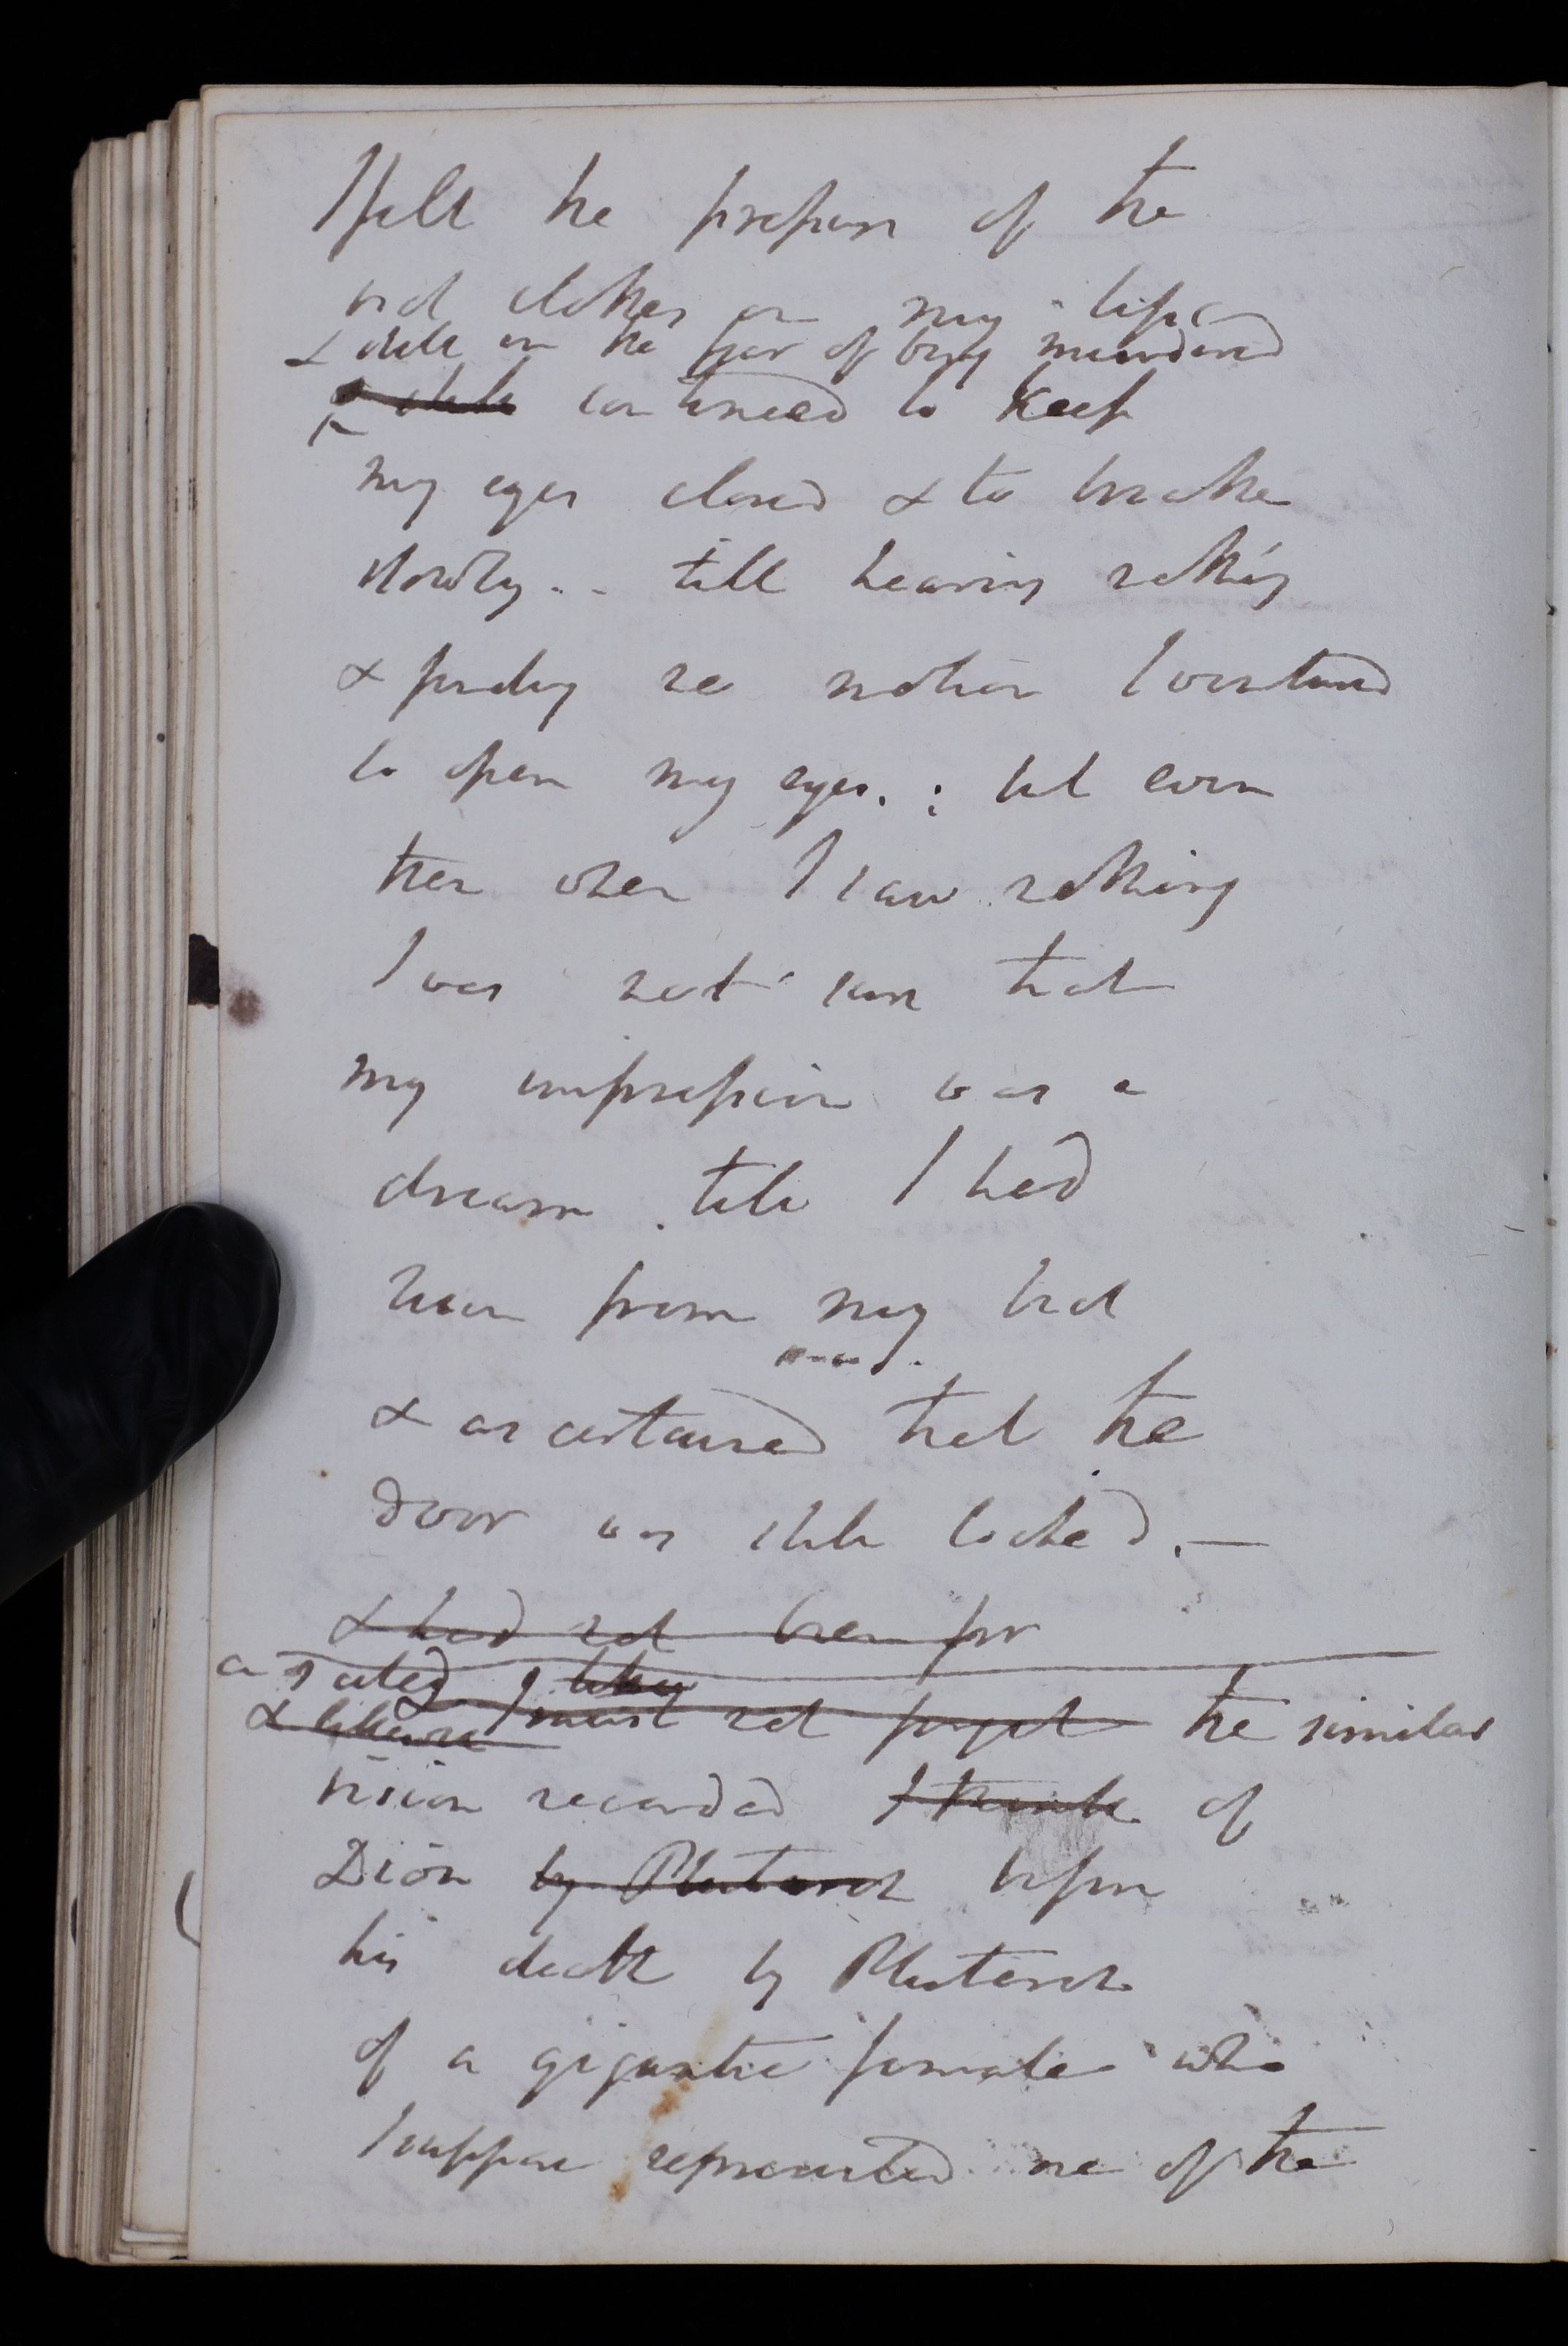 I felt the pressure of the
bed clothes on my lips
& still in the fear of being murdered
& still continued to keep
my eyes closed & to breathe
slowly .. till hearing nothing
& finding no motion I ventured
to open my eyes. ; but even
then when I saw nothing
I was not sure that
my impression was a
dream . till I had
risen from my bed
& ascertained that the
door was still locked. —
& had not been for
I must not forget the similar
vision recorded I think of
Dion by Plutarch before
his death by Plutarch
of a gigantic female who
I suppose represented one of the